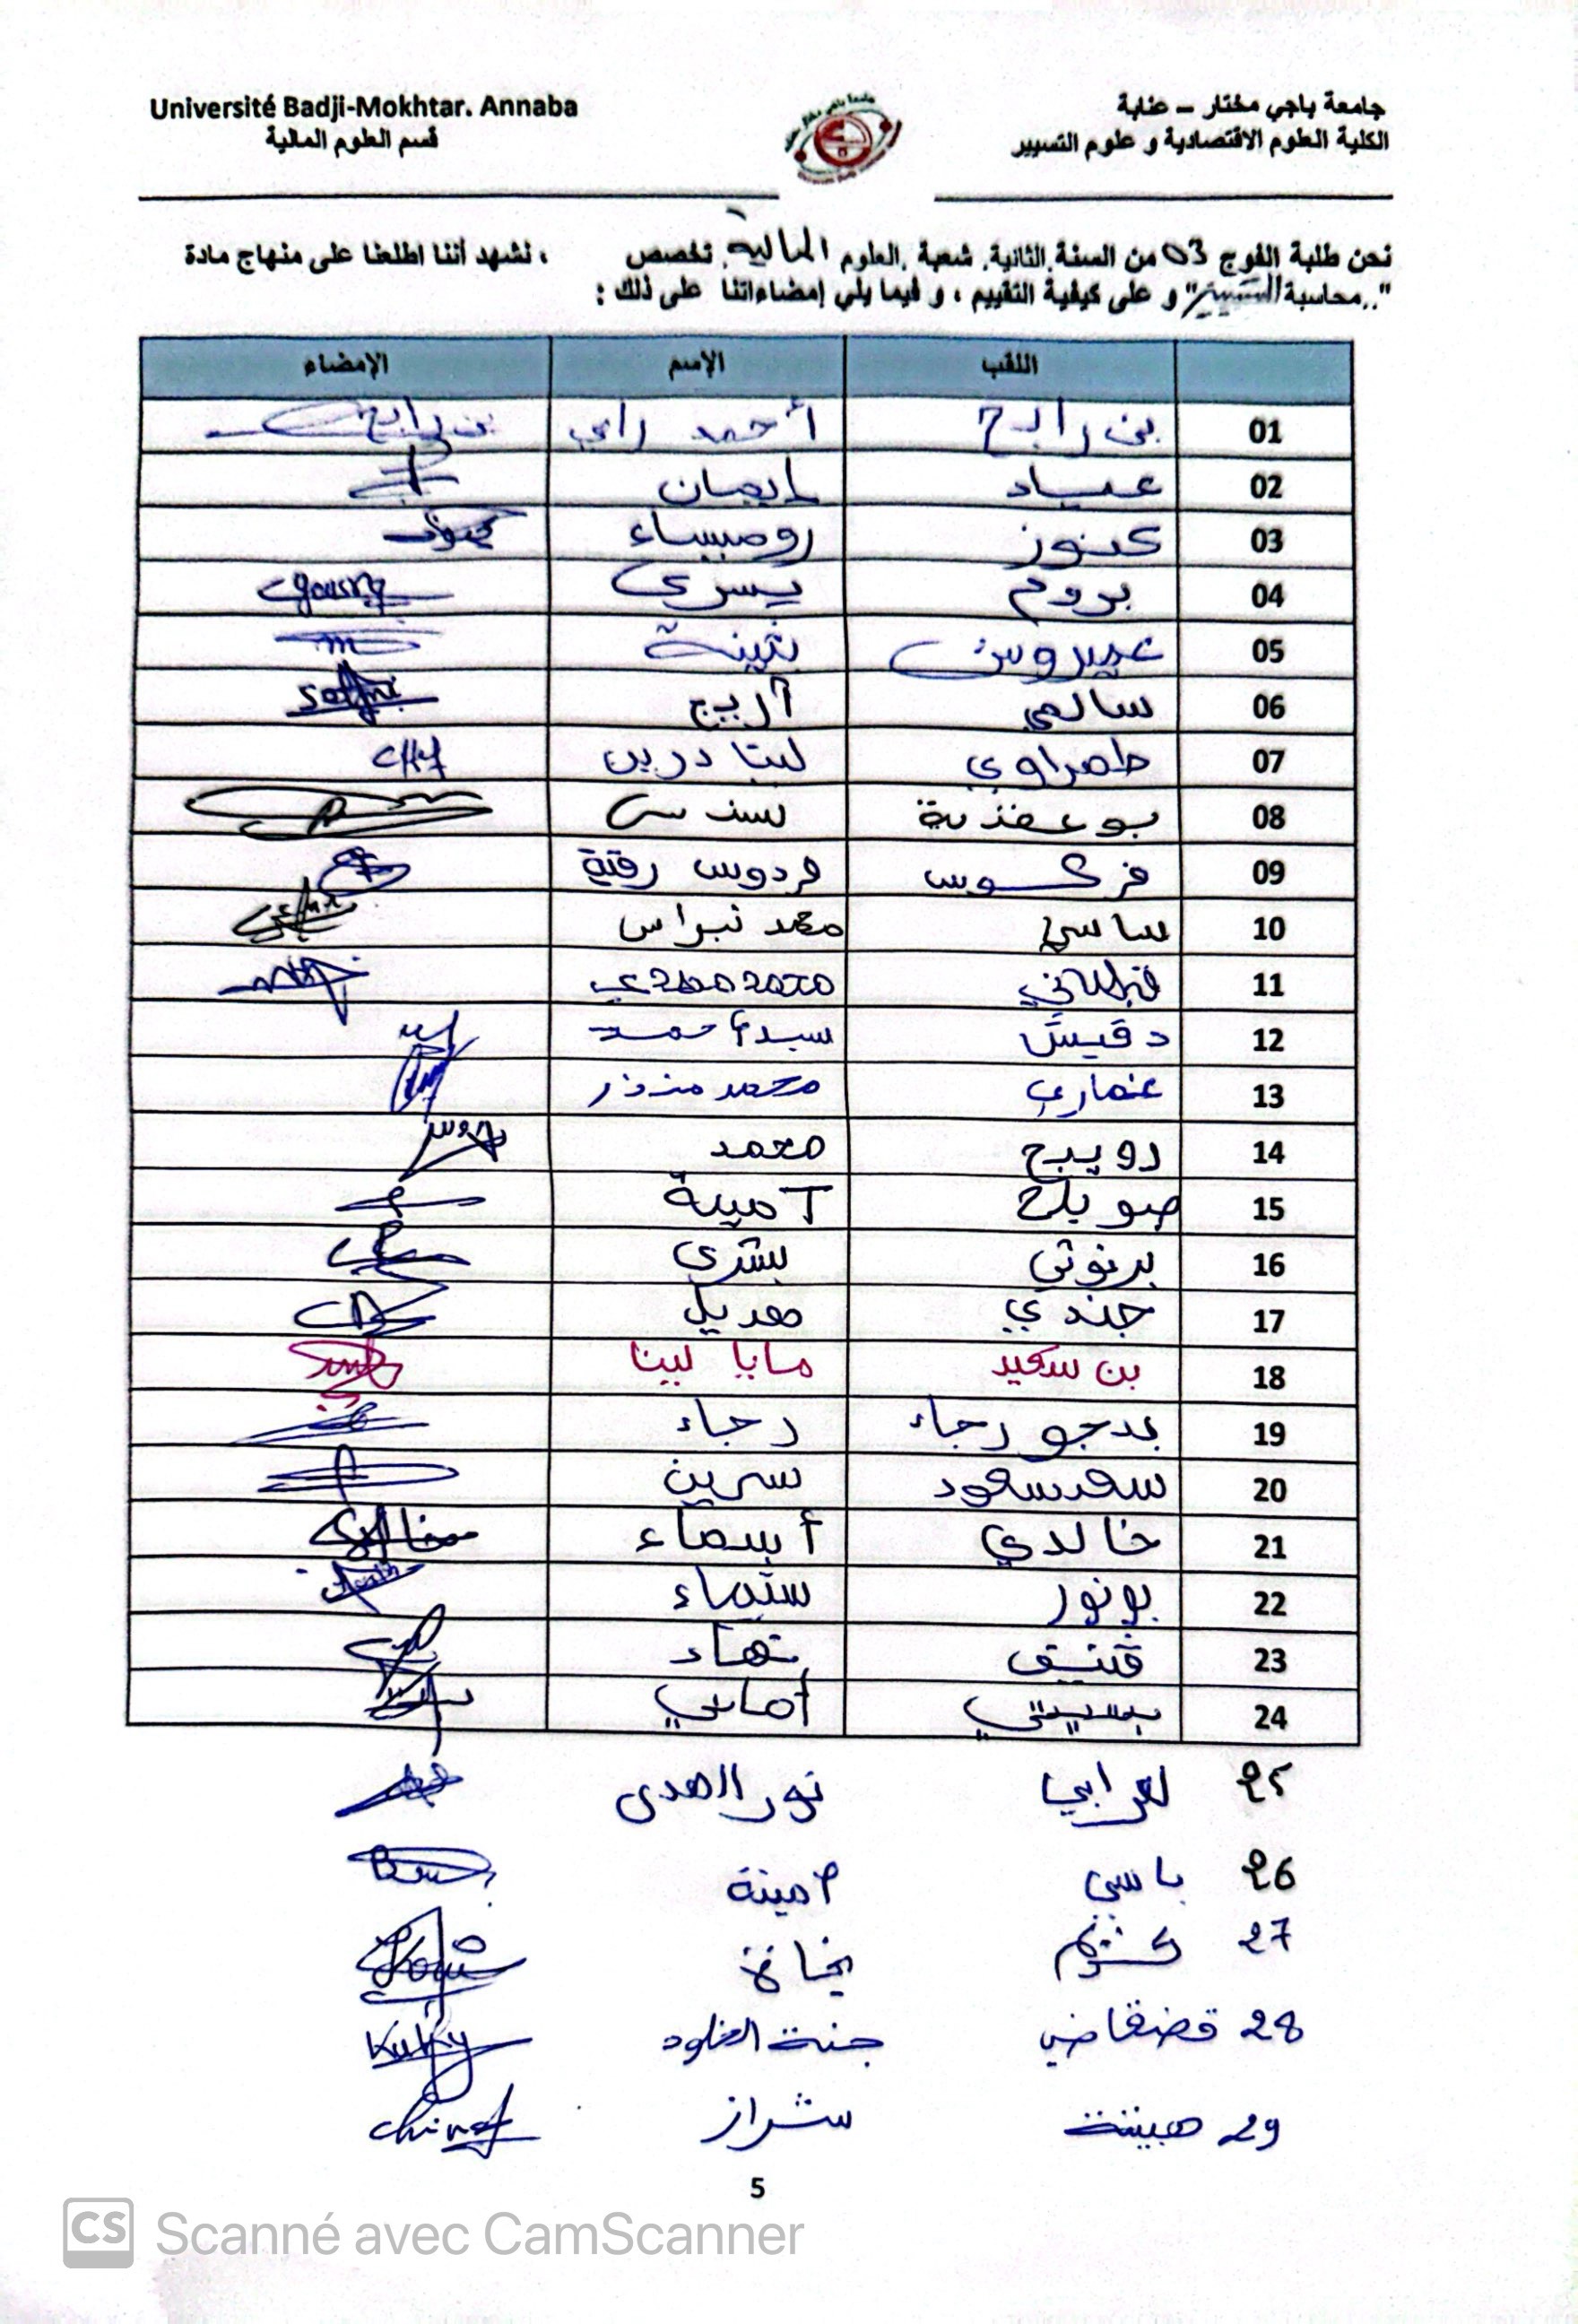 Université Badji-Mokhtar. Annaba
قسم العلوم المالية
جامعة باجي مختار – عنابة
الكلية العلوم الاقتصادية و علوم التسيير
نحن طلبة الفوج 03 من السنة الثانية. شعبة .العلوم المالية. تخصص ، نشهد أننا اطلعنا على منهاج مادة
"..محاسبة التسيير" و على كيفية التقييم ، و فيما يلي إمضاءاتنا على ذلك :
اللقب الإسم الإمضاء
01 بن رابح أحمد رامي بن رابح
02 عياد إيمان
03 كنوز روميساء
04 بروم يسرى
05 عميروش بثينة
06 سالمي أريج
07 طمراوي لينا درين
08 بوعفنة سندس
09 فركوس فردوس رقية
10 ساسي محمد نبراس
11 محمد مهدي
12 دقيش سيد أحمد
13 عنماري محمد منذر
14 رويبح محمد
15 صويلح آمينة
16 برنوتي بشرى
17 جندي هديل
18 بن سعيد مايا لينا
19 بدجو رجاء رجاء
20 سعد سعود سرين
21 خالدي أسماء
22 بونور شيماء
23 قنيف نهاد
24 أماني
25 لعرابي نور الهدى
26 باسي أمينة
27 كشرم نجاة
28 قضقاضي جنة الخلود
29 هبيتة شراز
5
CS Scanné avec CamScanner